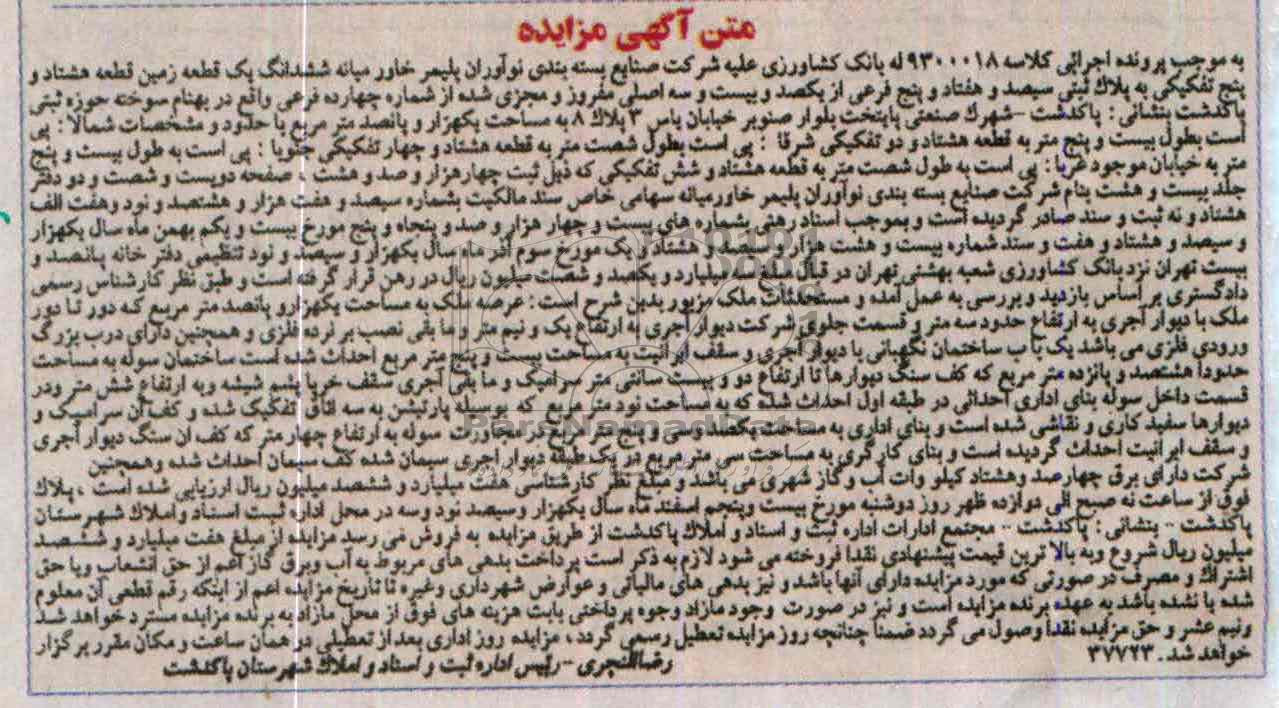 متن آگهی مزایده
به موجب پرونده اجرائی کلاسه ۹۳۰۰۰۱۸ له بانک کشاورزی علیه شرکت صنایع بسته بندی نوآوران پلیمر خاور میانه ششدانگ یک قطعه زمین قطعه هشتاد و
پنج تفکیکی به پلاک ثبتی سیصد و هفتاد و پنج فرعی از یکصد و بیست و سه اصلی مفروز و مجزی شده از شماره چهارده فرعی واقع در بهنام سوخته حوزه ثبتی
پاکدشت بنشانی : پاکدشت -شهرک صنعتی پایتخت بلوار صنوبر خیابان یاس ۳ پلاک ۸ به مساحت یکهزار و پانصد متر مربع با حدود و مشخصات شمالا : پی
است بطول بیست و پنج متر به قطعه هشتاد و دو تفکیکی شرقا : پی است بطول شصت متر به قطعه هشتاد و چهار تفکیکی جنوبا : پی است به طول بیست و پنج
متر به خیابان موجود غربا : پی است به طول شصت متر به قطعه هشتاد و شش تفکیکی که ذیل ثبت چهارهزار و صد و هشت ، صفحه دویست و شصت و دو دفتر
جلد بیست و هشت بنام شرکت صنایع بسته بندی نوآوران پلیمر خاورمیانه سهامی خاص سند مالکیت بشماره سیصد و هفت هزار و هشتصد و نود وهفت الف
هشتاد و نه ثبت و سند صادر گردیده است و بموجب اسناد رهنی بشماره های بیست و چهار هزار و صد و پنجاه و پنج مورخ بیست و یکم بهمن ماه سال یکهزار
و سیصد و هشتاد و هفت و سند شماره بیست و هشت هزار و هشتاد و یک مورخ سوم آذر ماه سال یکهزار و سیصد و نود تنظیمی دفتر خانه پانصد و
بیست تهران نزد بانک کشاورزی شعبه بهشتی تهران در قبال مبلغ میلیارد و یکصد و شصت میلیون ریال در رهن قرار گرفته است و طبق نظر کارشناس رسمی
دادگستری بر اساس بازدید و بررسی به عمل آمده و مستحدثات ملک مزبور بدین شرح است : عرصه ملک به مساحت یکهزارو پانصد متر مربع که دور تا دور
ملک با دیوار آجری به ارتفاع حدود سه متر و قسمت جلوی شرکت دیوار آجری به ارتفاع یک و نیم متر و ما بقی نصب بر نرده فلزی و همچنین دارای درب بزرگ
ورودی فلزی می باشد یک با ب ساختمان نگهبانی با دیوار آجری و سقف ایرانیت به مساحت بیست و پنج متر مربع احداث شده است ساختمان سوله به مساحت
حدودا هشتصد و پانزده متر مربع که کف سنگ دیوارها تا ارتفاع دو و بیست سانتی متر سرامیک و ما بقی آجری سقف خرپا پشم شیشه وبه ارتفاع شش متر ودر
قسمت داخل سوله بنای اداری احداثی در طبقه اول احداث شده که به مساحت نود متر مربع که بوسیله پارتیشن به سه اتاق تفکیک شده و کف آن سرامیک و
دیوارها سفید کاری و نقاشی شده است و بنای اداری به مساحت یکصد وسی و پنج متر مربع در مجاورت سوله به ارتفاع چهار متر که کف ان سنگ دیوار آجری
و سقف ایرانیت احداث گردیده است و بنای کارگری به مساحت سی متر مربع در یک طبقه دیوار آجری سیمان شده کف سیمان احداث شده وهمچنین
شرکت دارای برق چهارصد وهشتاد کیلو وات آب و گاز شهری می باشد و مبلغ نظر کارشناسی هفت میلیارد و ششصد میلیون ریال ارزیابی شده است ، پلاک
فوق از ساعت نه صبح الی دوازده ظهر روز دوشنبه مورخ بیست وپنجم اسفند ماه سال یکهزار وسیصد نود وسه در محل اداره ثبت اسناد واملاک شهرستان
پاکدشت - بنشانی : پاکدشت - مجتمع ادارات اداره ثبت و اسناد و املاک پاکدشت از طریق مزایده به فروش می رسد مزایده از مبلغ هفت میلیارد و ششصد
میلیون ریال شروع وبه بالا ترین قیمت پیشنهادی نقدا فروخته می شود لازم به ذکر است پرداخت بدهی های مربوط به آب وبرق گاز اعم از حق انشعاب ویا حق
اشتراک و مصرف در صورتی که مورد مزایده دارای آنها باشد و نیز بدهی های مالیاتی و عوارض شهرداری وغیره تا تاریخ مزایده اعم از اینکه رقم قطعی آن معلوم
شده یا نشده باشد به عهده برنده مزایده است و نیز در صورت وجود مازاد وجوه پرداختی بابت هزینه های فوق از محل مازاد به برنده مزایده مسترد خواهد شد
ونیم عشر و حق مزایده نقدا وصول می گردد ضمنا چنانچه روز مزایده تعطیل رسمی گردد ، مزایده روز اداری بعد از تعطیلی در همان ساعت و مکان مقرر برگزار
خواهد شد . ۳۷۷۲۳
رضاالنجری - رئیس اداره ثبت و اسناد و املاک شهرستان پاکدشت
ParsNamadData